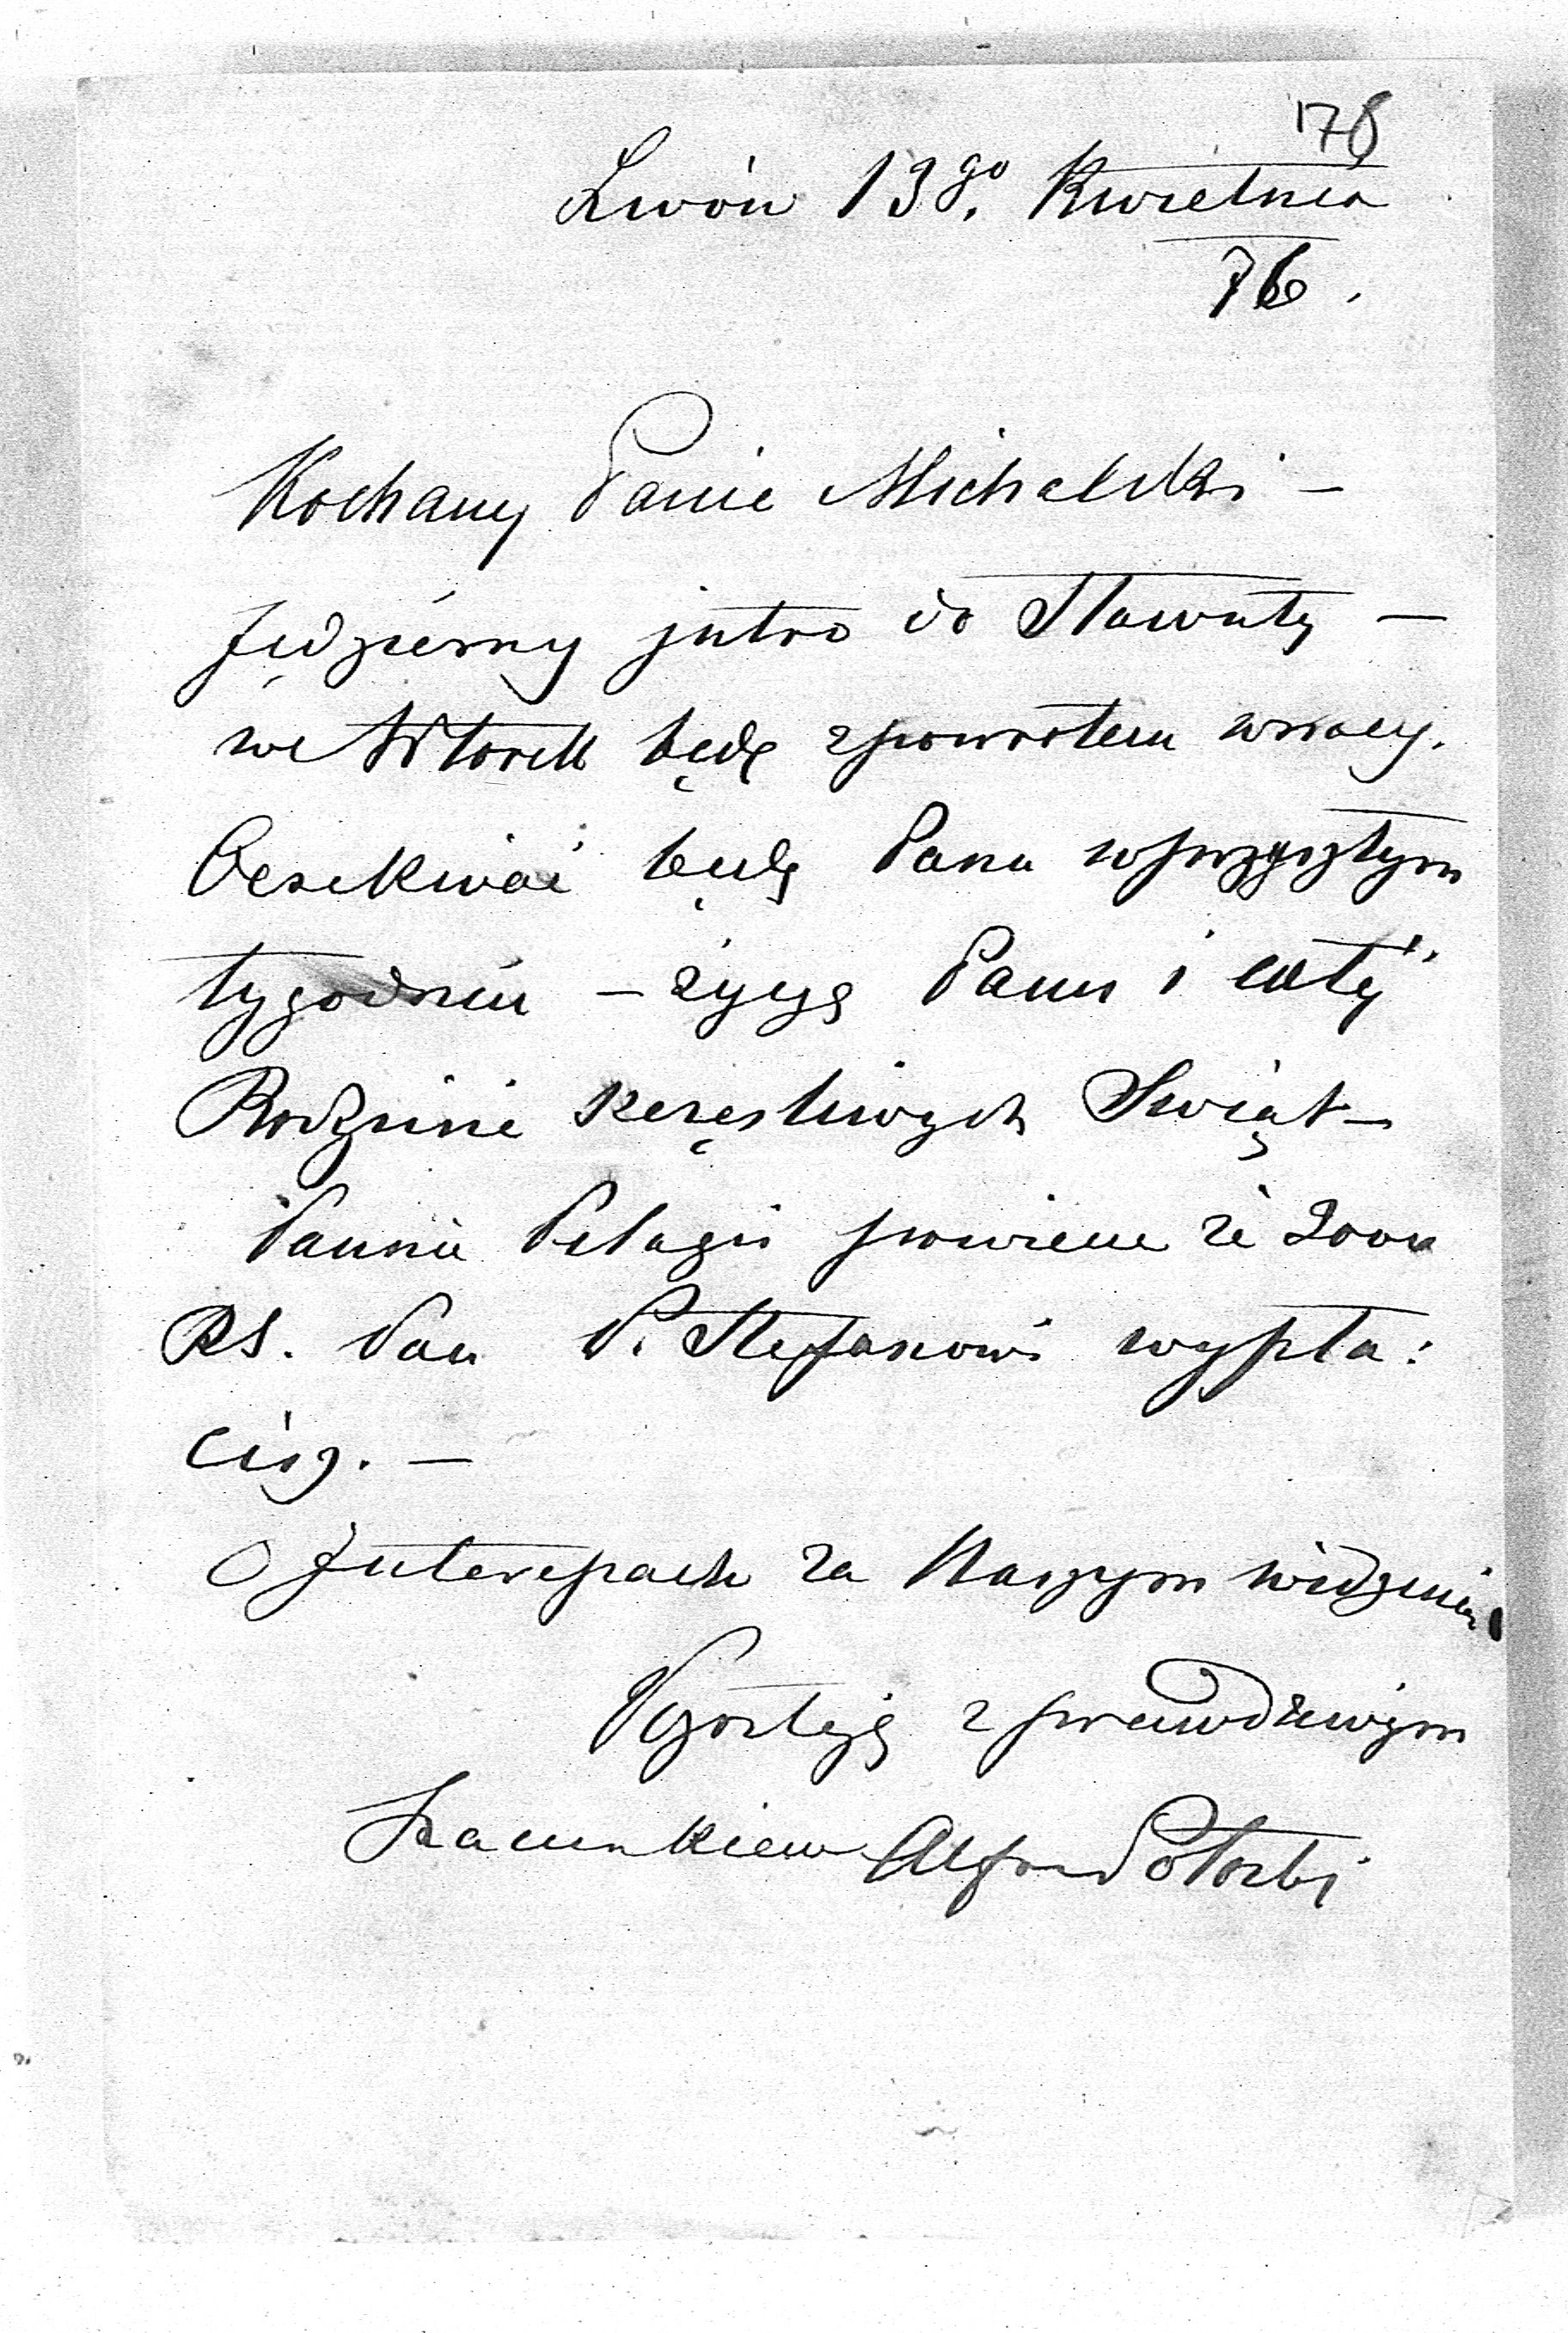 178
Lwów 13go. Kwietnia
76.
Kochany Panie Michalski –
Jedziemy jutro do Sławuty –
we Wtorek będę z powrotem
Oczekiwać będę Pana w przyszłym
tygodniu – życzę Panu i całéj
Rodzinie szczęśliwych Swiąt –
Pannie Pelagii powiem że 2000
RS. Pan P. Stefanowi wypła:
cisz. –
O Interesach za Naszym widzeniem
Pozostaję z prawdziwym
szacunkiem Alfred Potocki